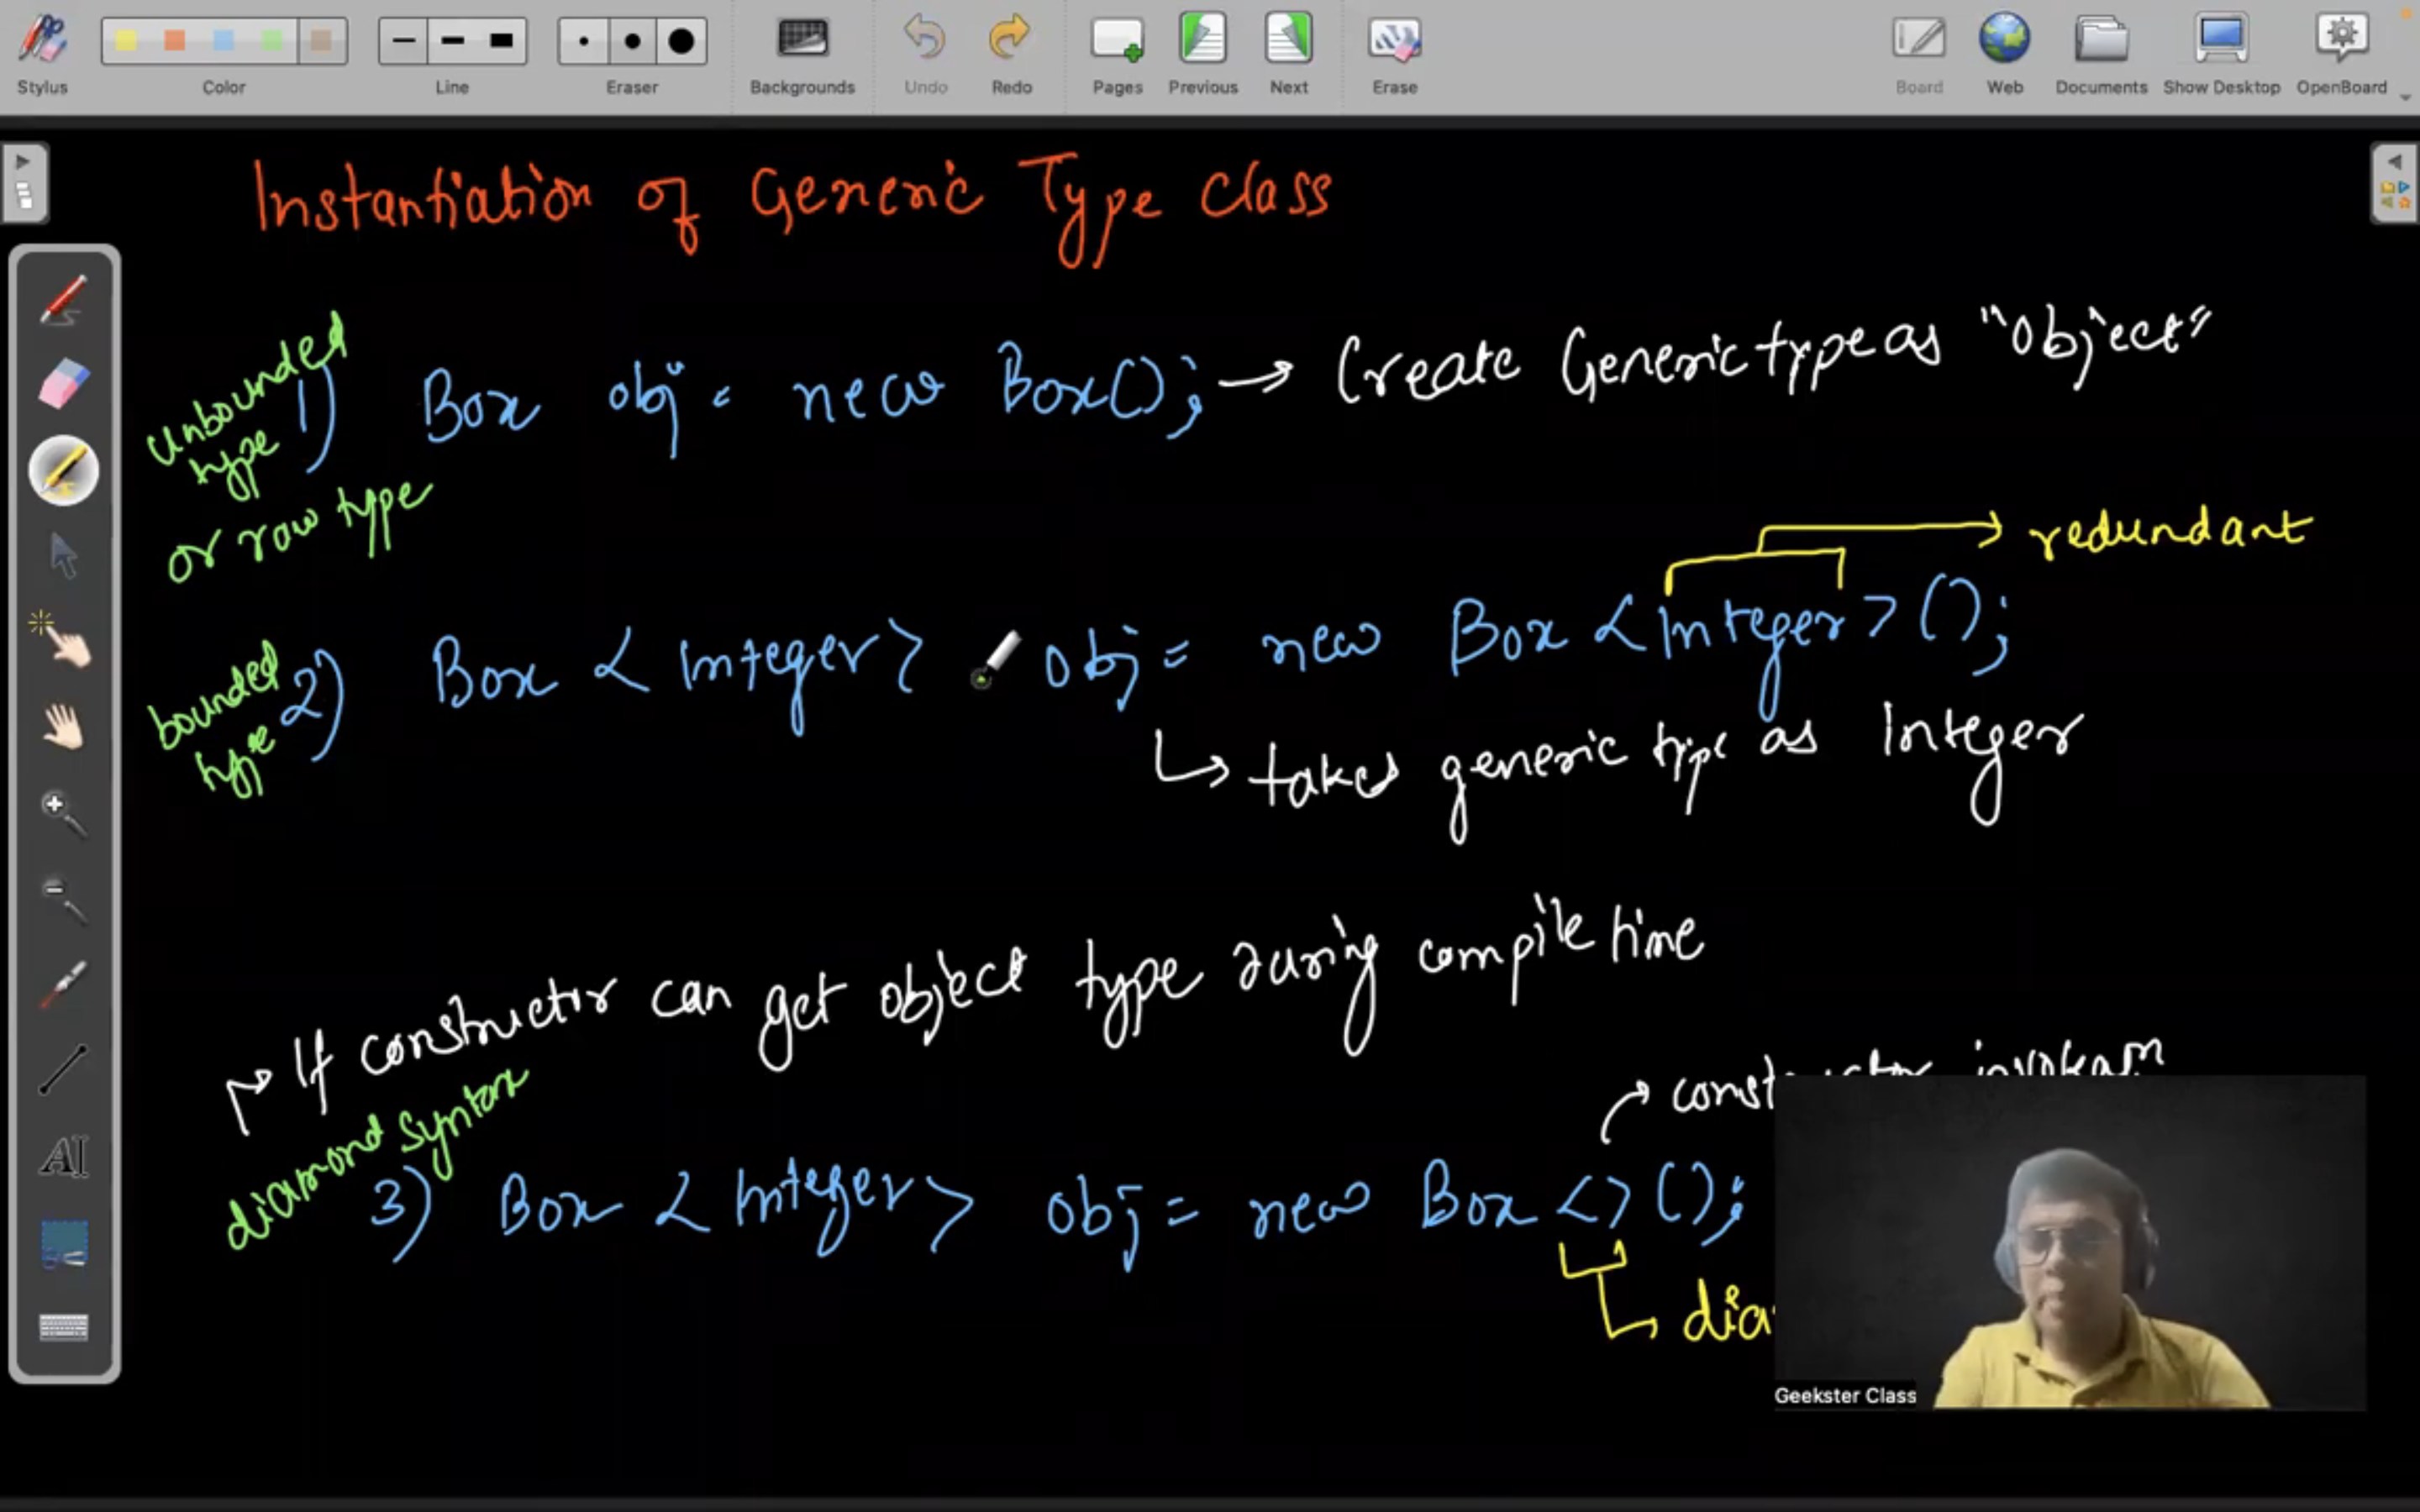 Stylus Color Line Eraser Backgrounds Undo Redo Pages Previous Next Erase Board Web Documents Show Desktop OpenBoard
Instantiation of Generic Type Class
unbounded type or raw type
1) Box obj = new Box(); → Create Generic type as "Object"
redundant
bounded type
2) Box < Integer > obj = new Box < Integer > ();
↳ takes generic type as Integer
If constructor can get object type during compile time
diamond syntax
constructor
3) Box < Integer > obj = new Box < > ();
dia
Geekster Class
AI